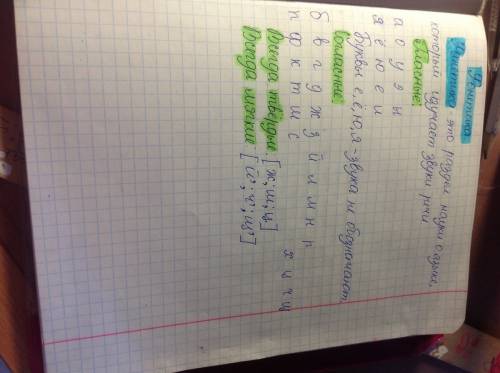 Фонетика
Фонетика - это раздел науки о языке,
который изучает звуки речи
Гласные:
а о у э ы
я ё ю е и
Буквы е, ё, ю, я - звука не обозначают.
Согласные:
б в г д ж з й л м н р
п ф к т ш с х ц ч щ
Всегда твёрдые: [ж; ш; ц]
Всегда мягкие: [й'; ч'; щ']